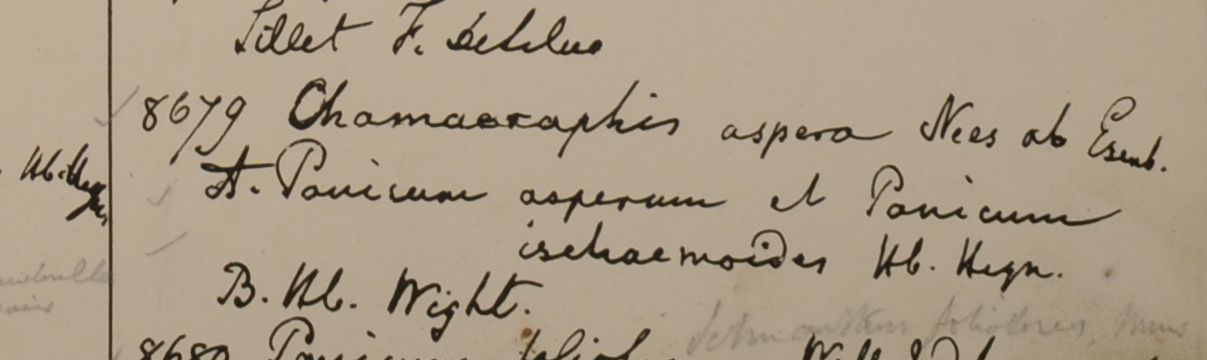 Sillet F. de Silva
8679 Chamaeraphis aspera Nees ab Esenb.
Hb. Heyn.
A. Panicum asperum et Panicum
ischaemoides Hb. Heyn.
B. Hb. Wight.
8680 Panicum